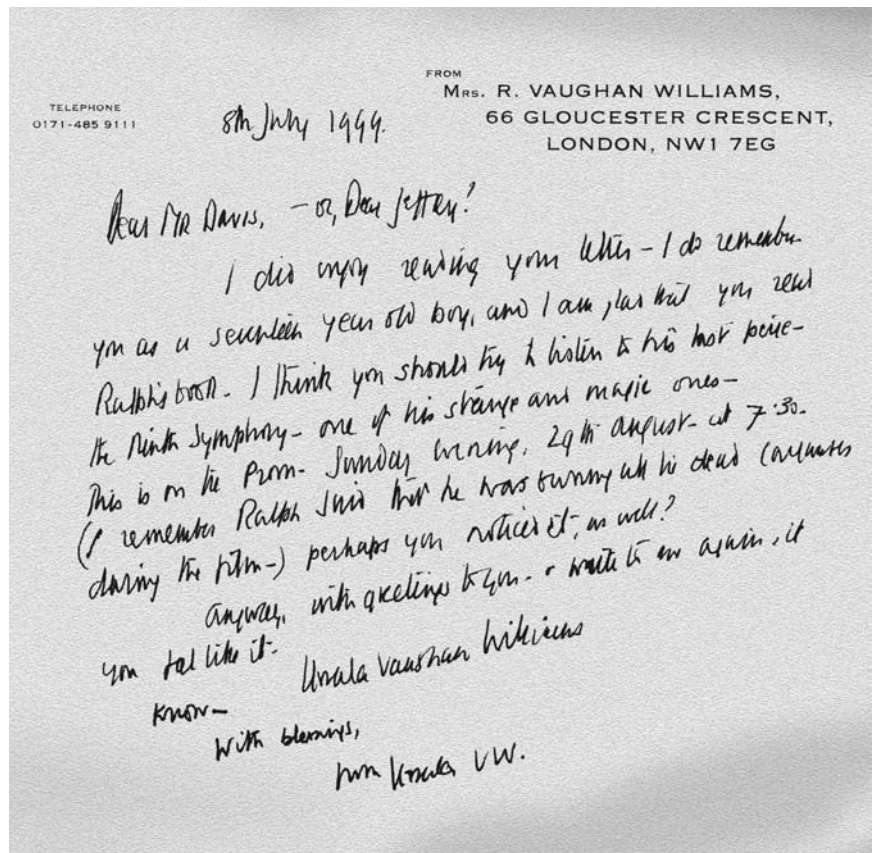 FROM
MRS. R. VAUGHAN WILLIAMS,
66 GLOUCESTER CRESCENT,
LONDON, NW1 7EG
TELEPHONE
0171-485 9111
8th July 1999.
Dear Mr Davis, - or, Dear Jeffrey?
I did enjoy reading your letter - I do remember
you as a seventeen year old boy, and I am glad that you read
Ralph's book. I think you should try to listen to his last piece -
the Ninth Symphony - one of his strange and magic ones -
This is on the Prom - Sunday evening, 29th August - at 7.30.
(I remember Ralph said that he was all the dead
during the film -) perhaps you noticed it, as well?
Anyway, with greetings to you - & write to me again, if
you feel like it.
Ursula Vaughan Williams
Know -
With blessings,
from Ursula VW.